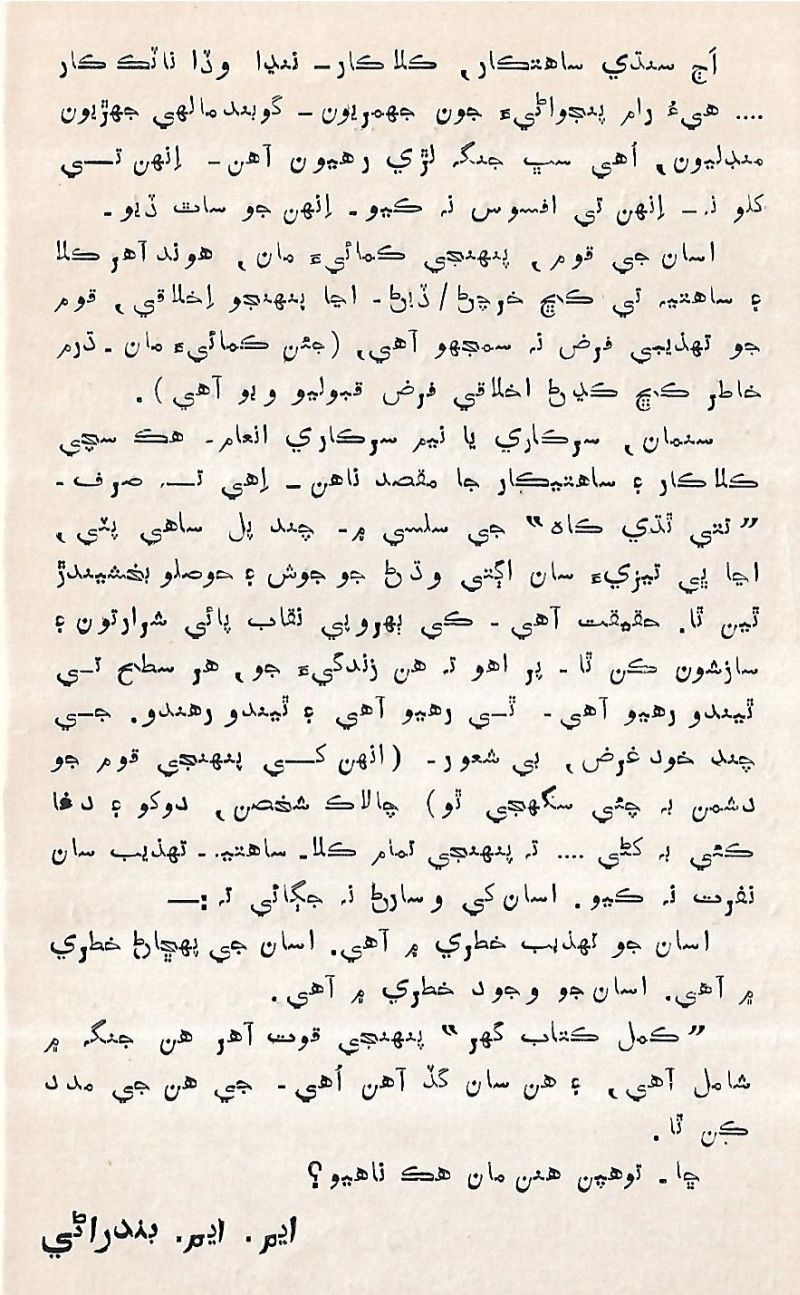 اَڄ سنڌي ساهتڪار، ڪلاڪار ـ ننڍا وڏا ناٽڪ ڪار
.... هيءُ رام پنجواڻيءَ جون جهمريون ـ گوبند مالهي جهڙيون
منڊليون، اُهي سڀ جنگ لڙي رهيون آهن ـ اِنهن تي
کلو نہ ـ اِنهن تي افسوس نہ ڪيو ـ اِنهن جو ساٿ ڏيو ـ
اسان جي قوم، پنهنجي ڪمائيءَ مان، هوند آهر ڪلا
۽ ساهتيہ تي ڪڇ خرچڻ / ڏيڻ ـ اڃا پنهنجو اِخلاقي، قوم
جو تهذيبي فرض نہ سمجهو آهي، (جئن ڪمائيءَ مان ـ ڌرم
خاطر ڪڇ ڪڍڻ اخلاقي فرض قبوليو ويو آهي).
سنمان، سرڪاري يا نيم سرڪاري انعام ـ هڪ سچي
ڪلاڪار ۽ ساهتيڪار جا مقصد ناهن ـ اِهي تہ صرف ـ
”تتي ٿڌي ڪاهہ“ جي سلسي ۾ ـ چند پل ساهي پٽي،
اڃا ڀي تيزيءَ سان اڳتي وڌڻ جو جوش ۽ حوصلو بخشيندڙ
ٿين ٿا. حقيقت آهي ـ ڪي ٻهروپي نقاب پائي شرارتون ۽
سازشون ڪن ٿا ـ پر اهو تہ هن زندگيءَ جو، هر سطح تي
ٿيندو رهيو آهي ـ ٿي رهيو آهي ۽ ٿيندو رهندو. جي
چند خود غرض، بي شعور ـ (انهن کي پنهنجي قوم جو
دشمن بہ چئي سگهجي ٿو) چالاڪ شخصن، دوکو ۽ دغا
ڪئي بہ کڻي .... تہ پنهنجي تمام ڪلا ـ ساهتيہ ـ تهذيب سان
نفرت نہ ڪيو. اسان کي وسارڻ نہ جڳائي تہ :—
اسان جو تهذيب خطري ۾ آهي. اسان جي پهڇاڻ خطري
۾ آهي. اسان جو وجود خطري ۾ آهي.
”ڪمل ڪتاب گهر“ پنهنجي قوت آهر هن جنگ ۾
شامل آهي، ۽ هن سان گڏ آهن اُهي ـ جي هن جي مدد
ڪن ٿا.
ڇا ـ توهين هنن مان هڪ ناهيو؟
ايم. ايم. بندراڻي